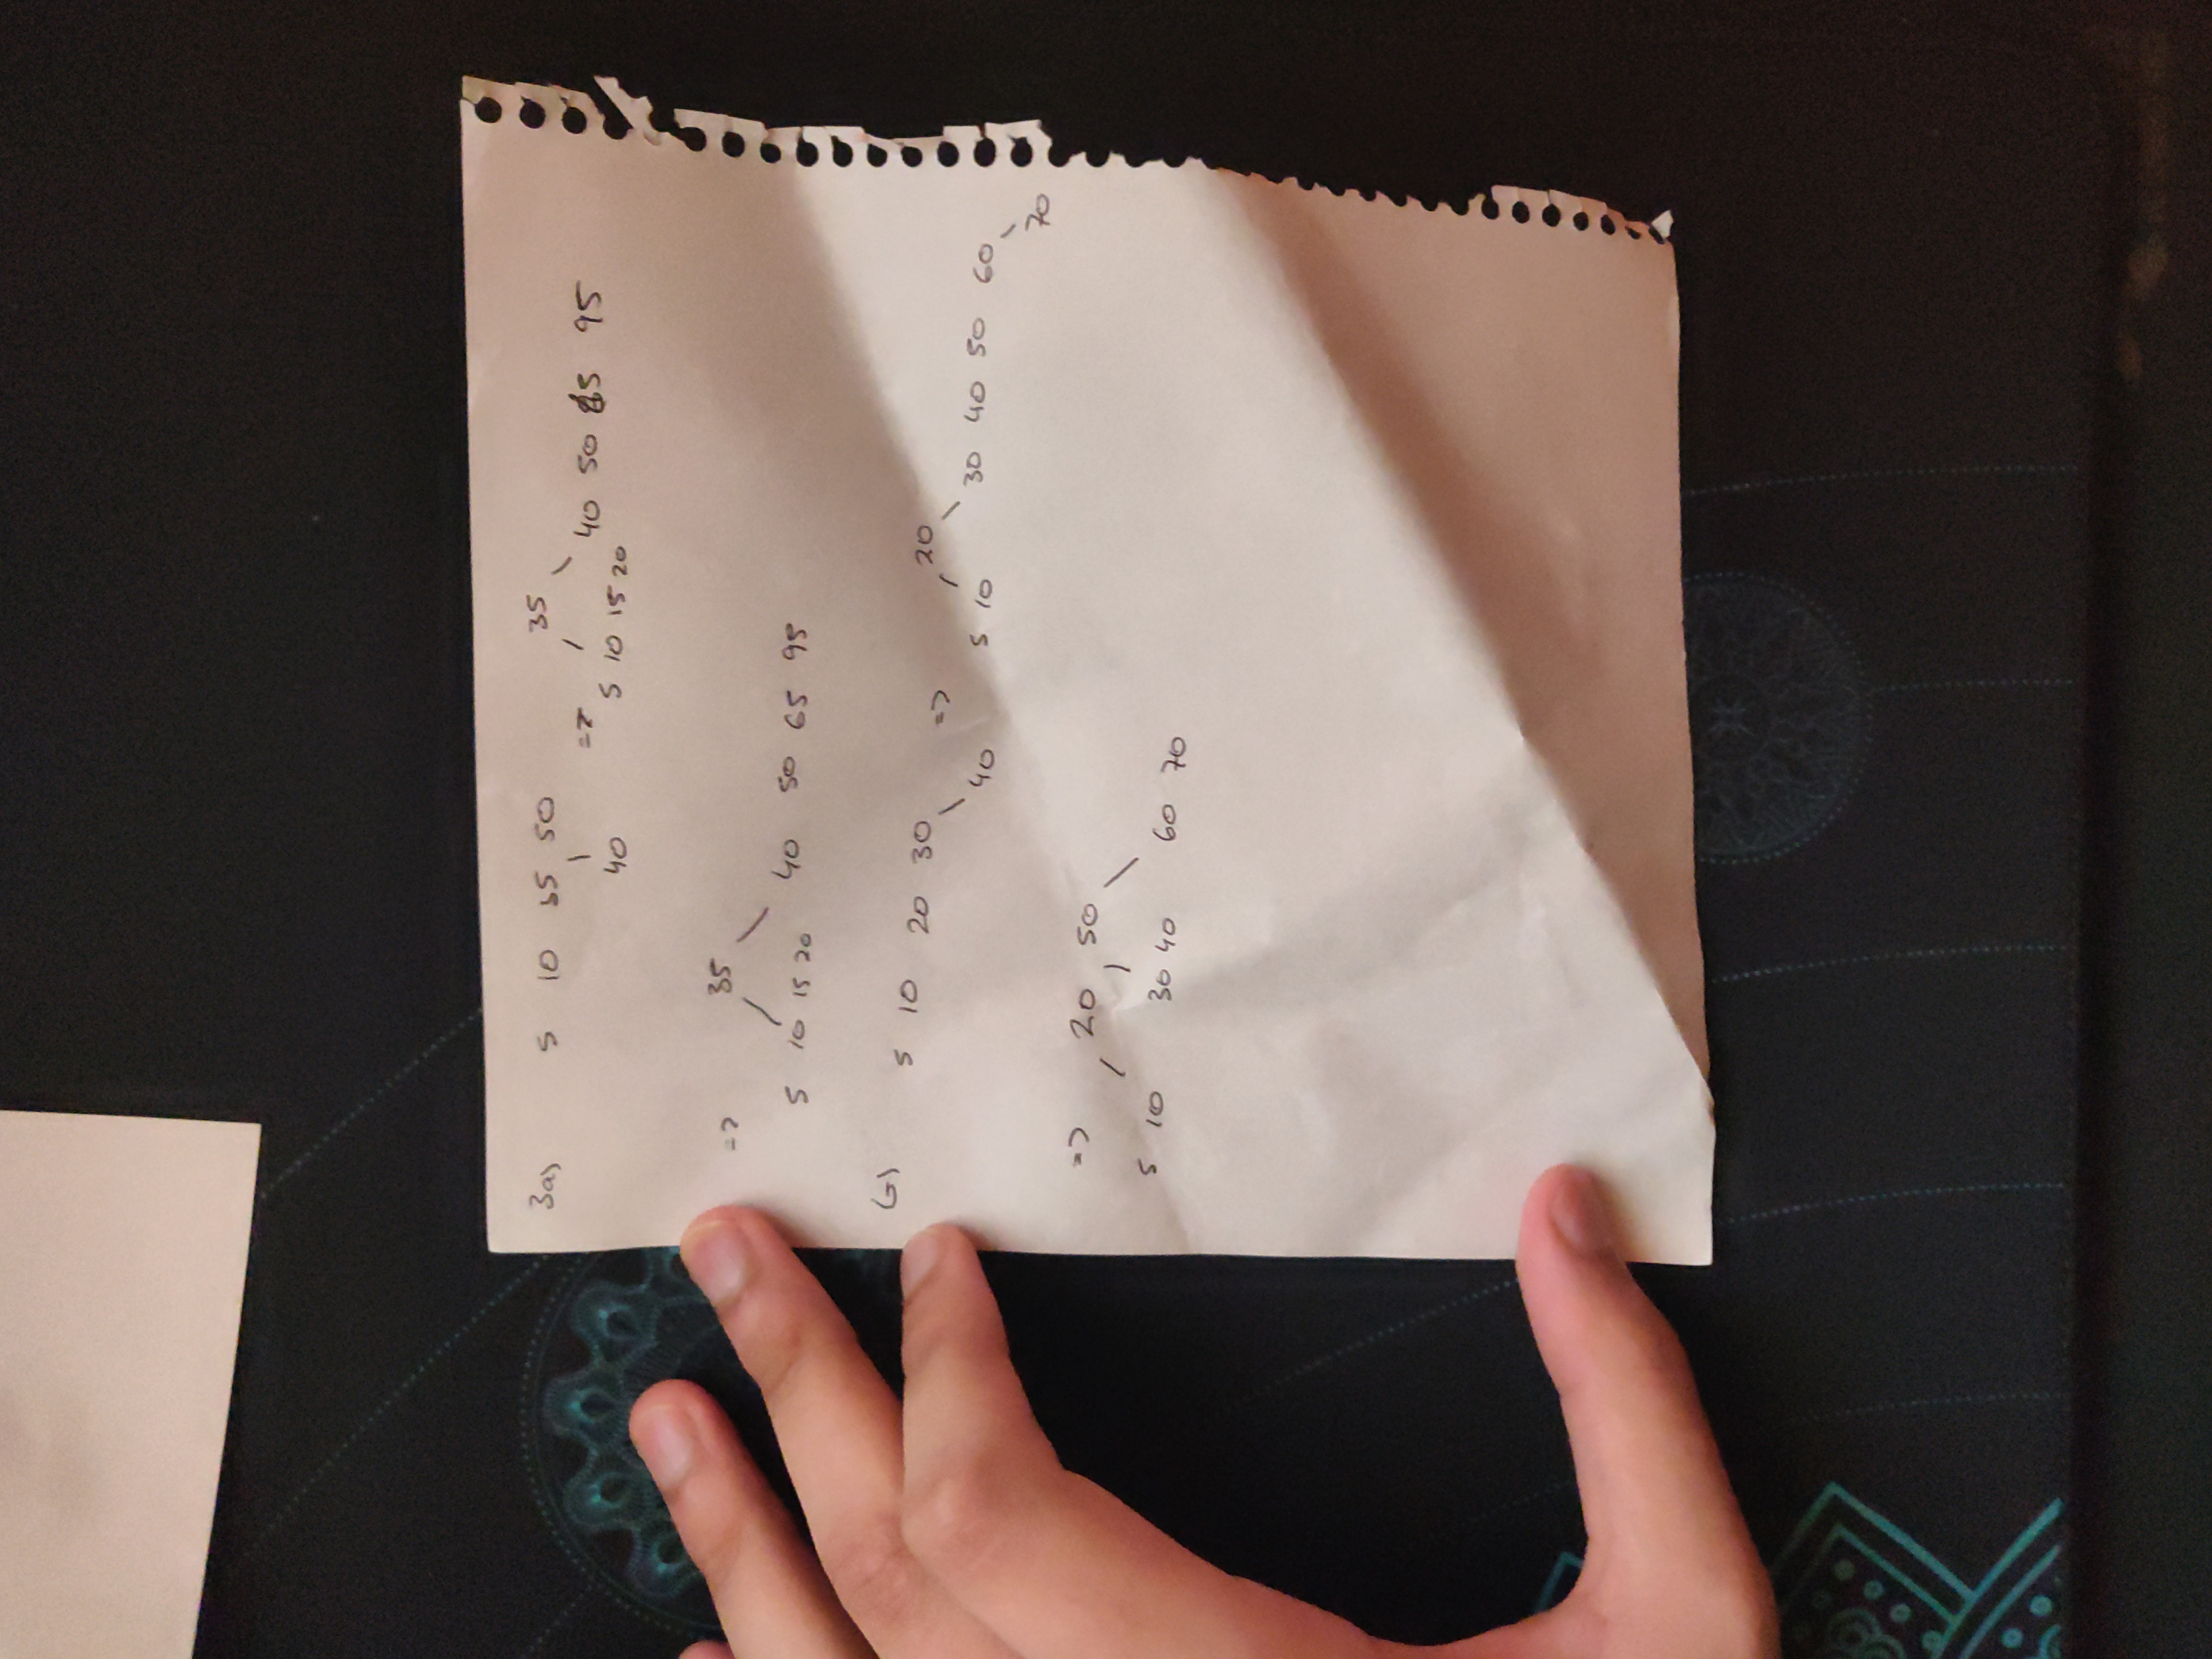 3a) 5 10 35 50 => 35
40 5 10 15 20 40 50 65 95
=> 35
5 10 15 20 40 50 65 95
5 10 20 30 => 20
40 5 10 30 40 50 60
70
=> 20 50
5 10 30 40 60 70